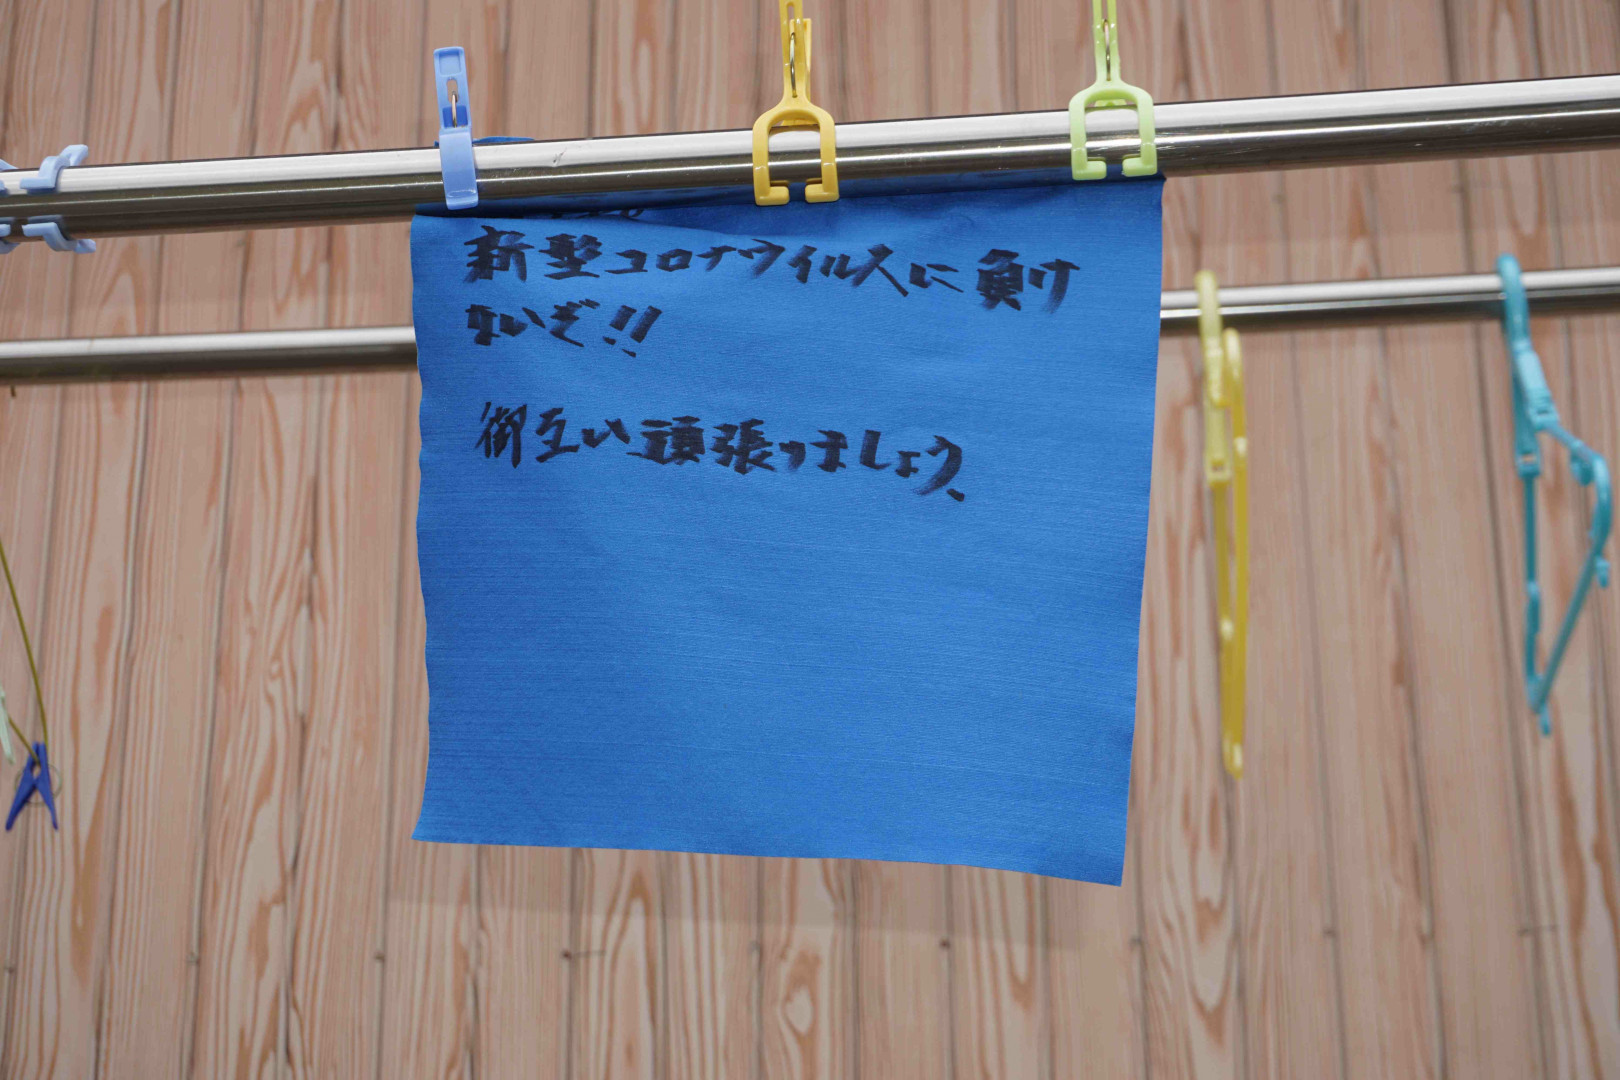 新型コロナウイルスに負け
ないぞ!!
御互い頑張りましょう、